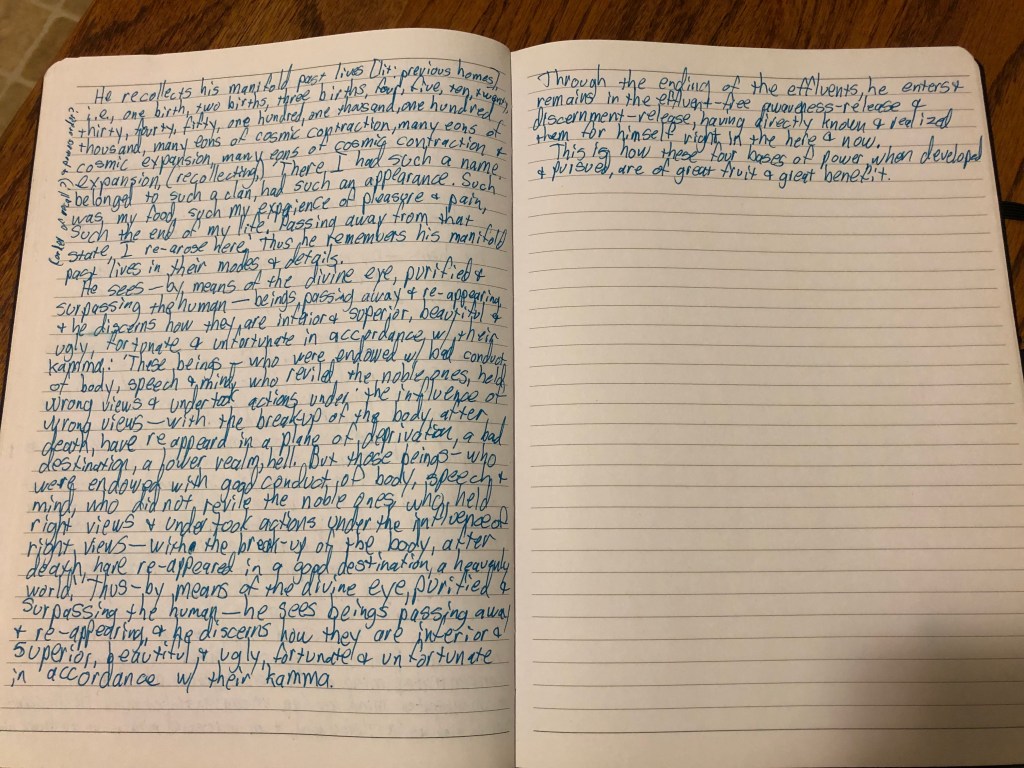 He recollects his manifold past lives [lit: previous homes],
i.e., one birth, two births, three births, four, five, ten, twenty,
thirty, fourty, fifty, one hundred, one thousand, one hundred
thousand, many eons of cosmic contraction, many eons of
cosmic expansion, many eons of cosmic contraction &
expansion, (recollecting) 'There I had such a name,
belonged to such a clan, had such an appearance. Such
was my food, such my expirience of pleasure & pain,
Such the end of my life. Passing away from that
state, I re-arose here.' Thus he remembers his manifold
past lives in their modes & details.
He sees — by means of the divine eye, purified &
surpassing the human — beings passing away & re-appearing,
& he discerns how they are inferior & superior, beautiful &
ugly, fortunate & unfortunate in accordance w/ their
kamma: 'These beings — who were endowed w/ bad conduct
of body, speech & mind, who reviled the noble ones, held
wrong views & undertook actions under the influence of
wrong views — with the break-up of the body, after
death, have reappeared in a plane of deprivation, a bad
destination, a lower realm, hell. But those beings — who
were endowed with good conduct of body, speech &
mind, who did not revile the noble ones, who held
right views & undertook actions under the influence of
right views — with the break-up of the body, after
death, have re-appeared in a good destination, a heavenly
world.' Thus — by means of the divine eye, purified &
surpassing the human — he sees beings passing away
& re-appearing, & he discerns how they are inferior &
superior, beautiful & ugly, fortunate & unfortunate
in accordance w/ their kamma.
Through the ending of the effluents, he enters &
remains in the effluent-free awareness-release &
discernment-release, having directly known & realized
them for himself right in the here & now.
This is how these four bases of power, when developed
& pursued, are of great fruit & great benefit.